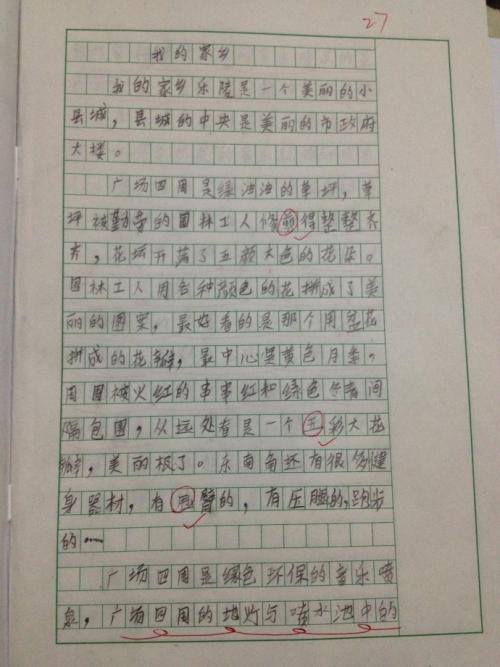 27
我的家乡
我的家乡乐陵是一个美丽的小
县城，县城的中央是美丽的市政府
大楼。
广场四周是绿油油的草坪，草
坪被勤劳的园林工人修剪得整整齐
齐，花坛开满了五颜六色的花朵。
园林工人用各种颜色的花拼成了美
丽的图案，最好看的是那个用花
拼成的花瓣，最中心是黄色月季，
周围被火红的串串红和绿色间
隔包围，从远处看是一个五彩大花
，美丽极了。东南角还有很多健
身器材，有甩臂的，有压腿的，跑步
的…
广场四周是绿色环保的音乐喷
泉，广场四周的地灯与喷水池中的